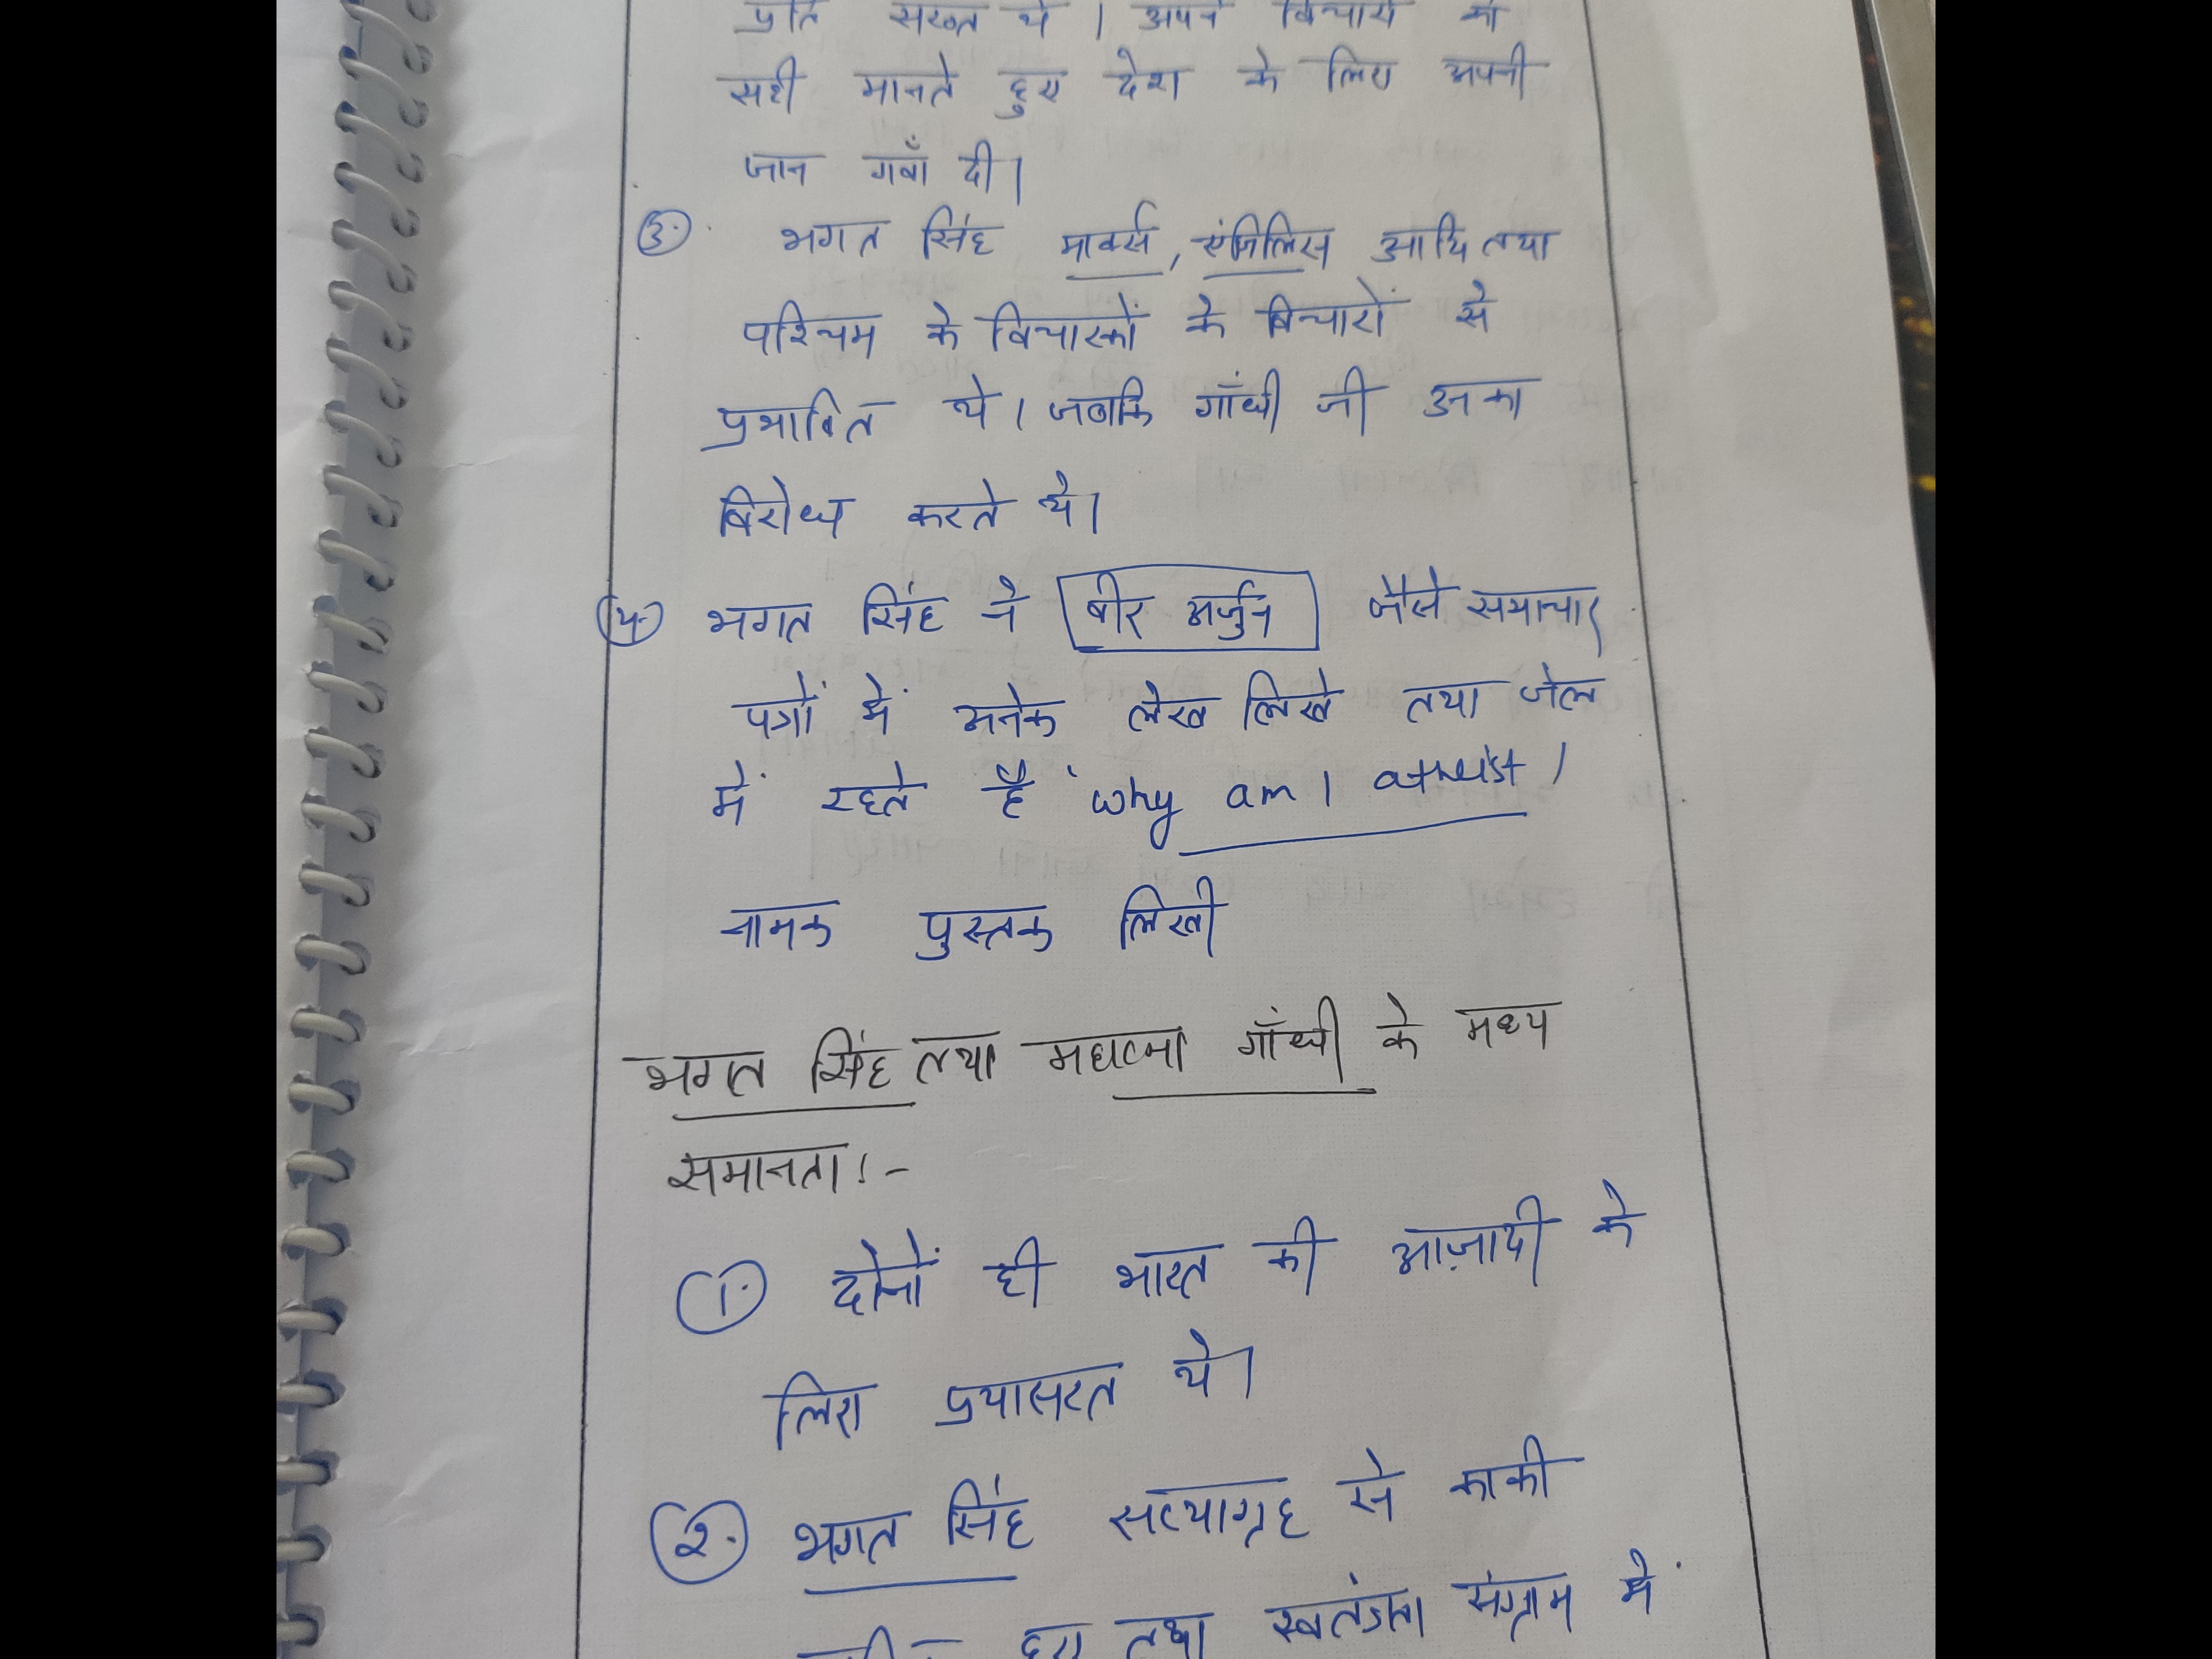 प्रति सख्त थे । अपने विचारों को
सही मानते हुए देश के लिए अपनी
जान गवाँ दी।
3. भगत सिंह मार्क्स, एंजिलिस आदि तथा
पश्चिम के विचारकों के विचारों से
प्रभावित थे। जबकि गाँधी जी उनका
विरोध करते थे।
4. भगत सिंह ने वीर अर्जुन जैसे समाचार
पत्रों में अनेक लेख लिखे तथा जेल
में रहते हैं 'why am I atheist'
नामक पुस्तक लिखी
भगत सिंह तथा महात्मा गाँधी के मध्य
समानता:-
1. दोनों ही भारत की आज़ादी के
लिए प्रयासरत थे।
2. भगत सिंह सत्याग्रह से काफी
हुए तथा स्वतंत्रता संग्राम में